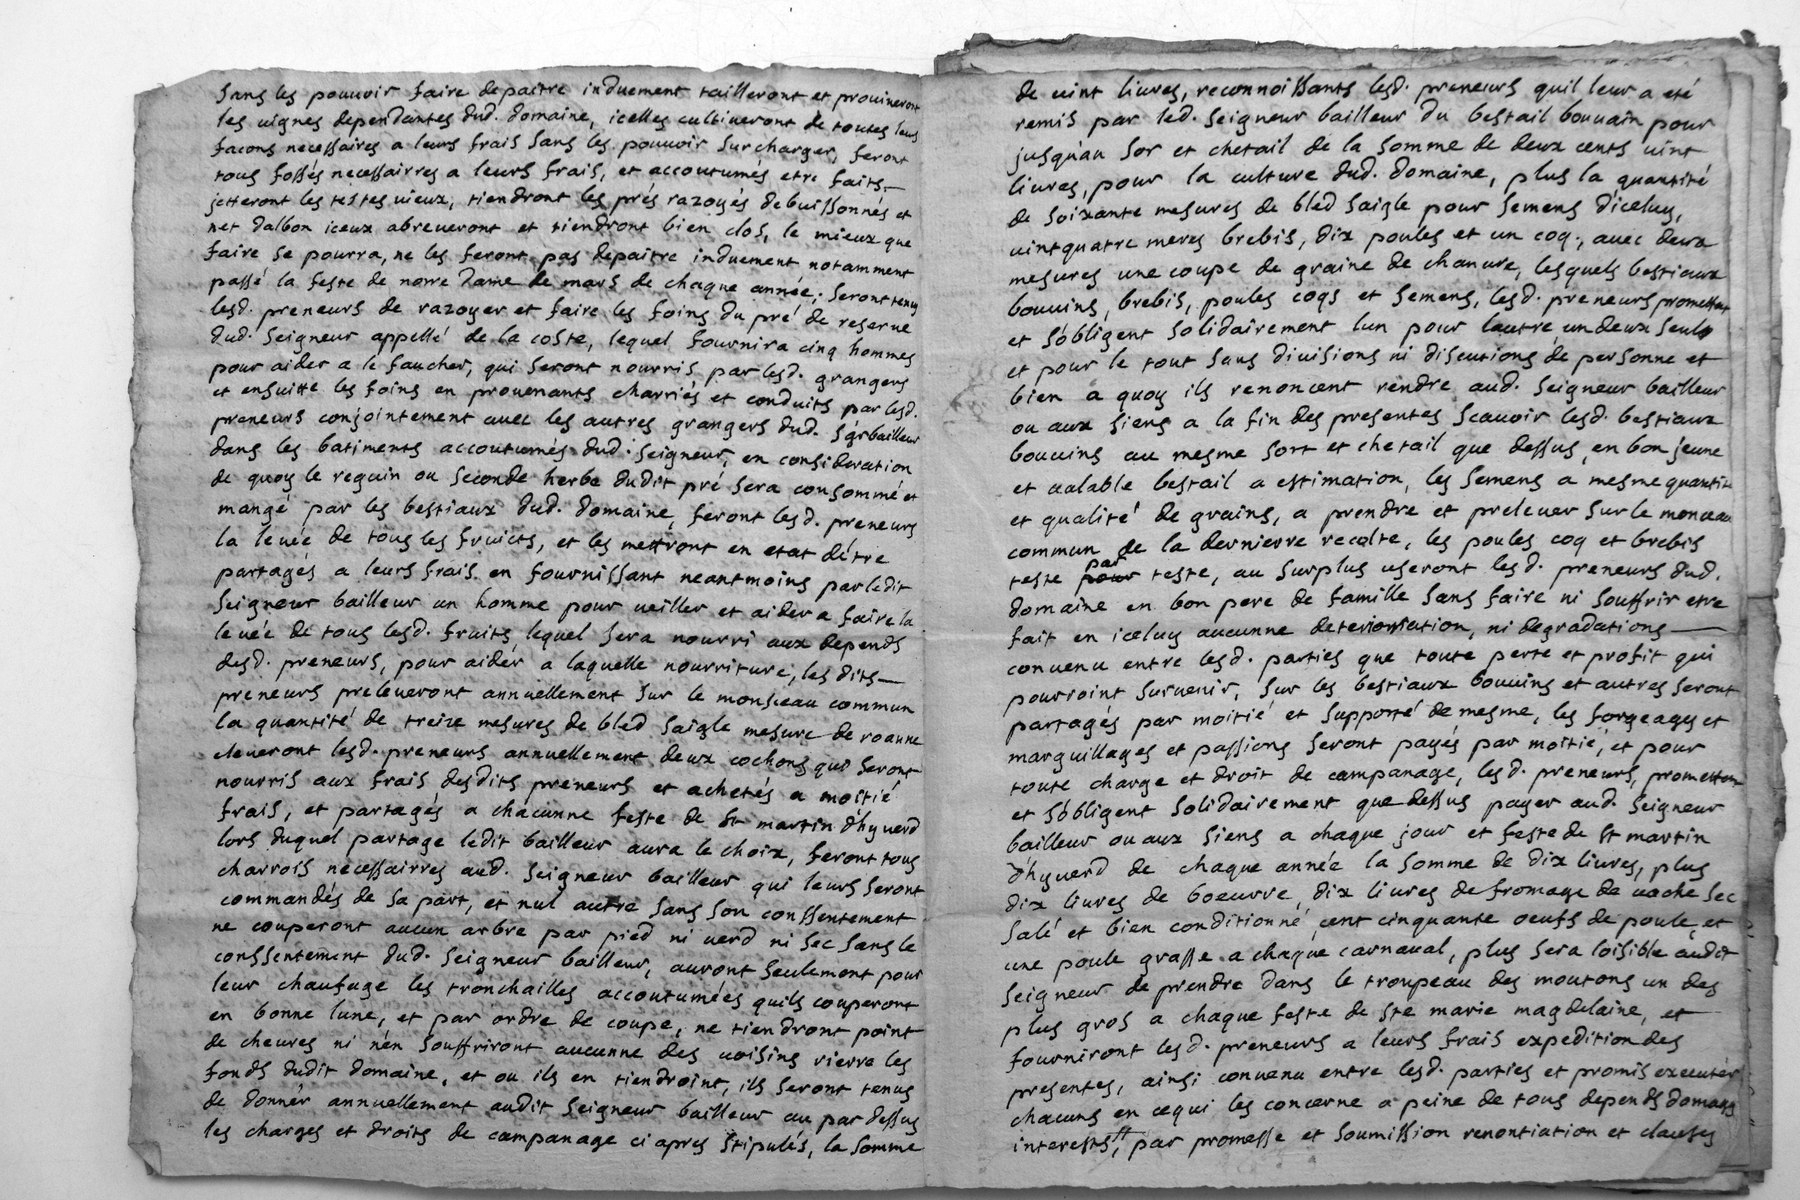 sans les pouuoir faire depaitre induement tailleront et prouineront
les uignes dependantes dud. domaine, icelles cultiueront de toutes leurs
facons necessaires a leurs frais sans les pouuoir surcharger, feront
tous fossés necessairres a leurs frais, et accoutumés etre faits,—
jetteront les testes uieux, tiendront les prés razoyés debuissonnés et
net dalbon iceux abreueront et tiendront bien clos, le mieux que
faire se pourra, ne les feront pas depaitre induement notamment
passé la feste de notre dame de mars de chaque année; seront tenus
lesd. preneurs de razoyer et faire les foins du pré de reserue
dud. seigneur appellé de la coste, lequel fournira cinq hommes
pour aider a le faucher, qui seront nourris par lesd. grangers
et ensuitte les foins en prouenants charriés et conduits par lesd.
preneurs conjointement auec les autres grangers dud. sgr bailleur
dans les batiments accoutumés dud. seigneur, en consideration
de quoy le reguin ou seconde herbe dudit pré sera consommé et
mangé par les bestiaux dud. domaine, feront lesd. preneurs
la leuée de tous les fruicts, et les mettront en etat détre
partagés a leurs frais en fournissant neantmoins par ledit
seigneur bailleur un homme pour ueiller et aider a faire la
leuée de tous lesd. fruits lequel sera nourri aux depends
desd. preneurs, pour aider a laquelle nourriture, les dits—
preneurs preleueront annuellement sur le monceau commun
la quantité de treize mesures de bled saigle mesure de roanne
eleueront lesd. preneurs annuellement deux cochons qui seront
nourris aux frais desdits preneurs et achetés a moitié
frais, et partagés a chacunne feste de St martin d'hyuerd
lors duquel partage ledit bailleur aura le choix, feront tous
charrois necessairres aud. seigneur bailleur qui leurs seront
commandés de sa part, et nul autre sans son conssentement
ne couperont aucun arbre par pied ni uerd ni sec sans le
conssentement dud. seigneur bailleur, auront seulement pour
leur chaufage les tronchailles accoutumées quils couperont
en bonne lune, et par ordre de coupe, ne tiendront point
de cheures ni nén souffriront aucunne des uoisins rierre les
fonds dudit domaine, et ou ils en tiendroint, ils seront tenus
de donnér annuellement audit seigneur bailleur au par dessus
les charges et droits de campanage ci apres stipulés, la somme
de uint liures, reconnoissants lesd. preneurs quil leur a eté
remis par led. seigneur bailleur du bestail bouuain pour
jusqu'au sor et chetail de la somme de deux cents uint
liures, pour la culture dud. domaine, plus la quantité
de soixante mesures de bled saigle pour semens diceluy,
uintquatre meres brebis, dix poules et un coq, auec deux
mesures une coupe de graine de chanure, lesquels bestiaux
bouuins, brebis, poules coqs et semens, lesd. preneurs promettent
et s'obligent solidairement lun pour lautre un deux seul
et pour le tout sans diuisions ni discutions de personne et
bien a quoy ils renoncent rendre aud. seigneur bailleur
ou aux siens a la fin des presentes scauoir lesd. bestiaux
bouuins au mesme sort et chetail que dessus, en bon jeune
et ualable bestail a estimation, les semens a mesme quantité
et qualité de grains, a prendre et preleuer sur le monceau
commun de la dernierre recolte, les poules coq et brebis
teste pour par teste, au surplus useront lesd. preneurs dud.
domaine en bon pere de famille sans faire ni souffrir etre
fait en iceluy aucunne deterioration, ni degradations—
conuenu entre lesd. parties que toute perte et profit qui
pourroint suruenir, sur les bestiaux bouuins et autres seront
partagés par moitié et supporté de mesme, les forgeages et
marguillages et passions seront payés par moitié, et pour
toute charge et droit de campanage, lesd. preneurs, promettent
et sobligent solidairement que dessus payer aud. seigneur
bailleur ou aux siens a chaque jour et feste de St martin
d'hyuerd de chaque année la somme de dix liures, plus
dix liures de boeurre, dix liures de fromage de uache sec
salé et bien conditionné, cent cinquante oeufs de poule, et
une poule grasse a chaque carnaual, plus sera loisible audit
seigneur de prendre dans le troupeau des moutons un des
plus gros a chaque feste de ste marie magdelaine, et—
fourniront lesd. preneurs a leurs frais expedition des
presentes, ainsi conuenu entre lesd. parties et promis executér
chacuns en cequi les concerne a peine de tous depends domages
interests, par promesse et soumission renontiation et clauses